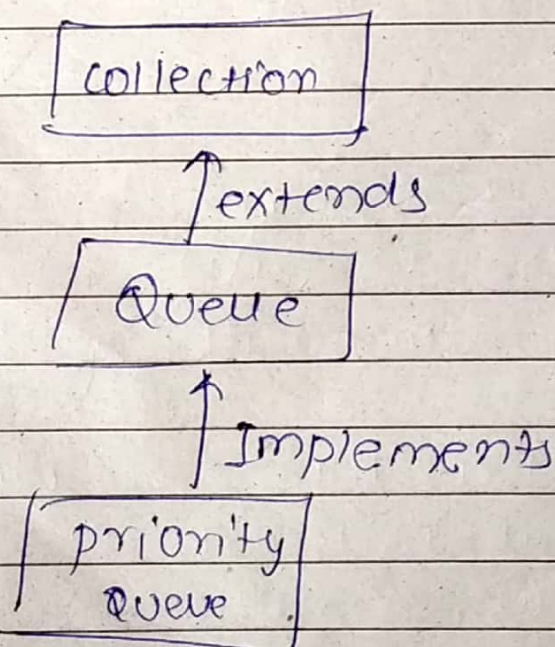 collection
extends
Queue
Implements
priority
Queue